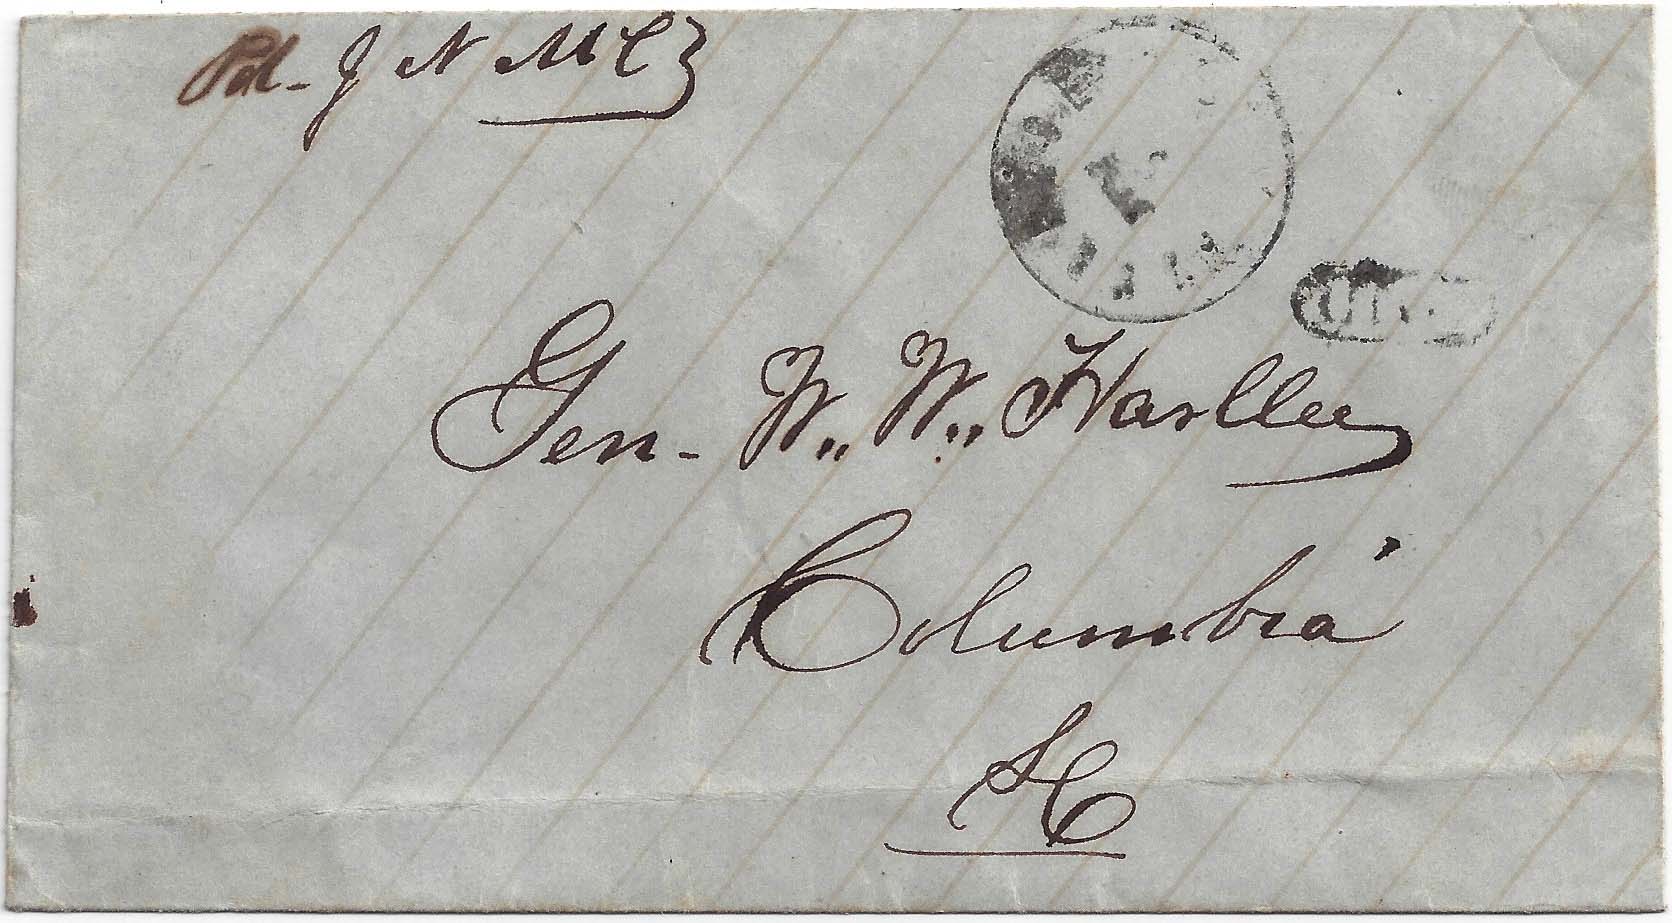 Pd - J N McC
Gen - W,, W,, Harllee
Columbia
SC